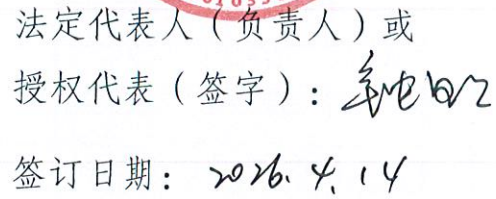 法定代表人（负责人）或
授权代表（签字）：
签订日期： 2026.4.14